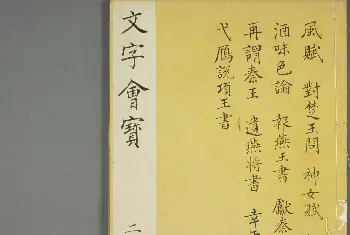 風賦 對楚王問 神女賦
酒味色論 報燕王書 獻秦
再謂秦王 遺燕將書 幸
弋鴈說項王書
文字會寶 二